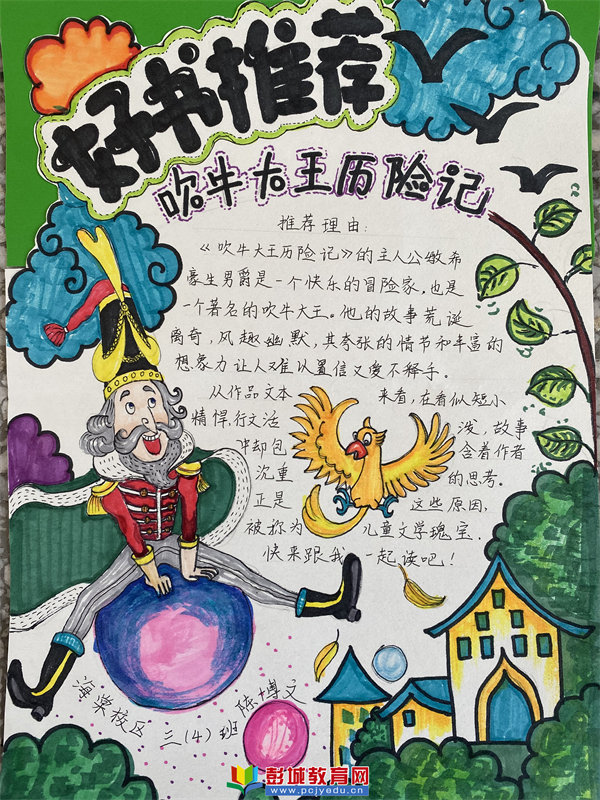 好书推荐
吹牛大王历险记
推荐理由：
《吹牛大王历险记》的主人公敏希
豪生男爵是一个快乐的冒险家，也是
一个著名的吹牛大王。他的故事荒诞
离奇，风趣幽默，其夸张的情节和丰富的
想象力让人难以置信又爱不释手。
从作品文本 来看，在看似短小
精悍，行文活 泼，故事
中却包 含着作者
沉重 的思考。
正是 这些原因，
被称为 儿童文学瑰宝.
快来跟我一起读吧！
海棠校区 三（4）班 陈博文
彭城教育网
www.pcjyedu.cn